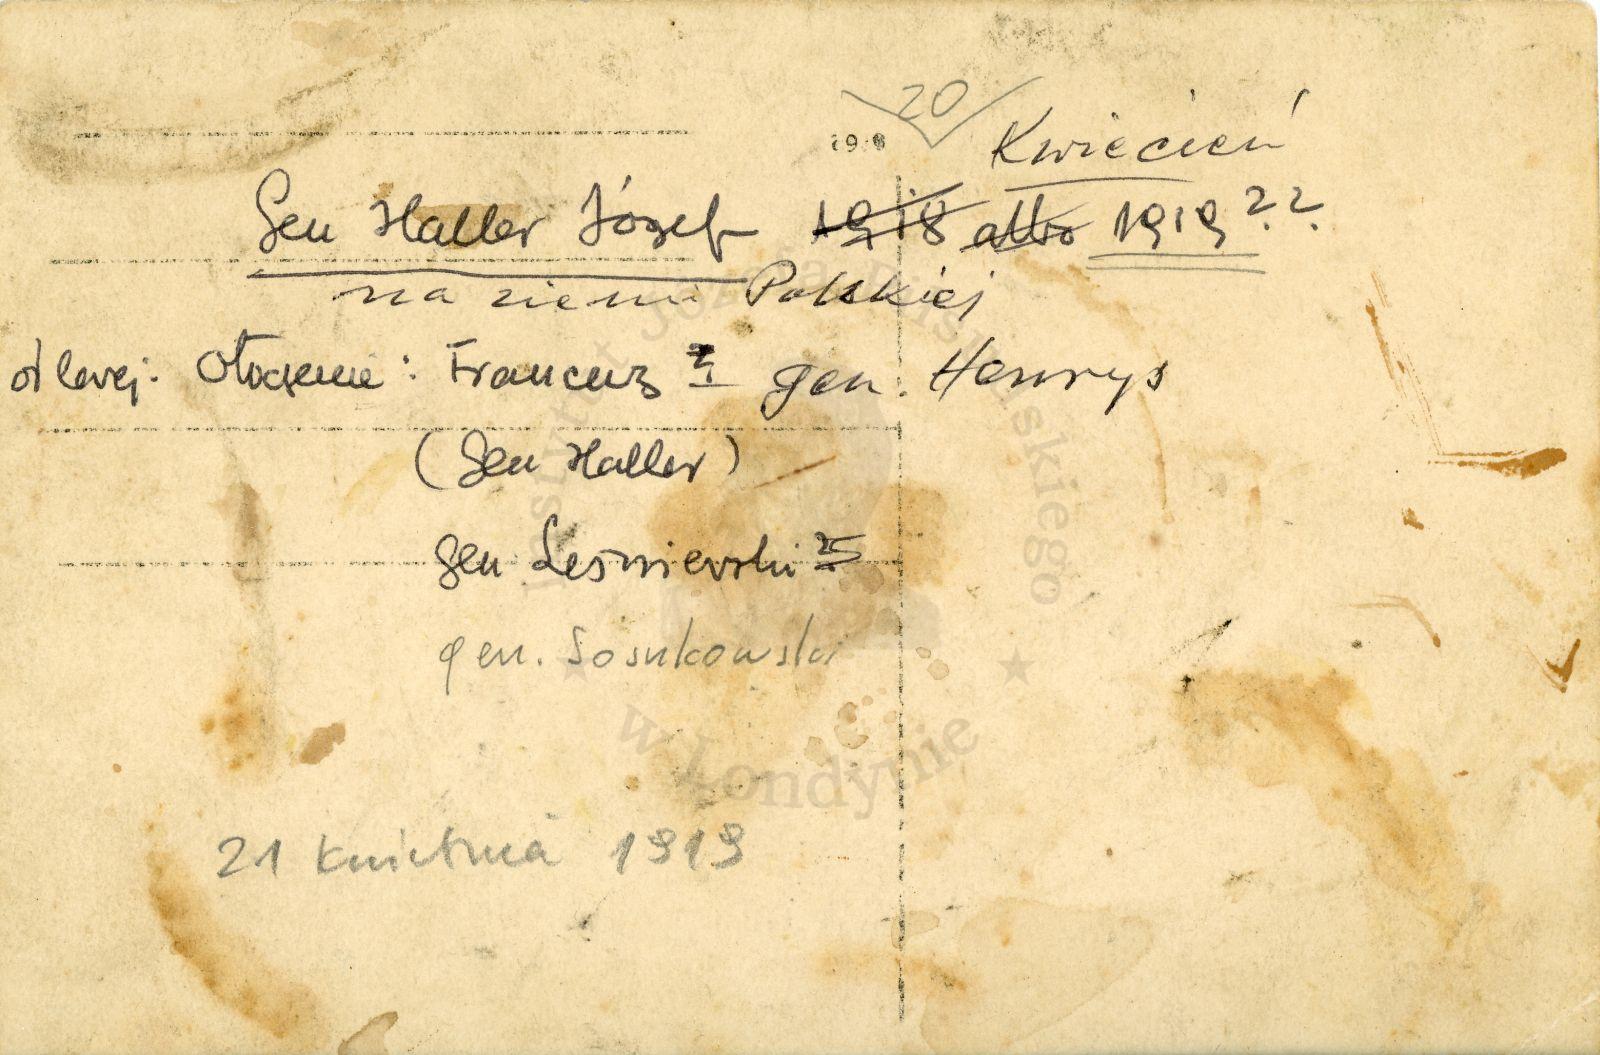 20
Kwiecień
Gen Haller Józef 1918 albo 1919 ??
na ziemi Polskiej
od lewej. Otoczenie: Francuz gen. Henrys
(Gen Haller)
gen Leśniewski
gen. Sosnkowski
21 kwietnia 1919
Instytut Józefa Piłsudskiego
w Londynie